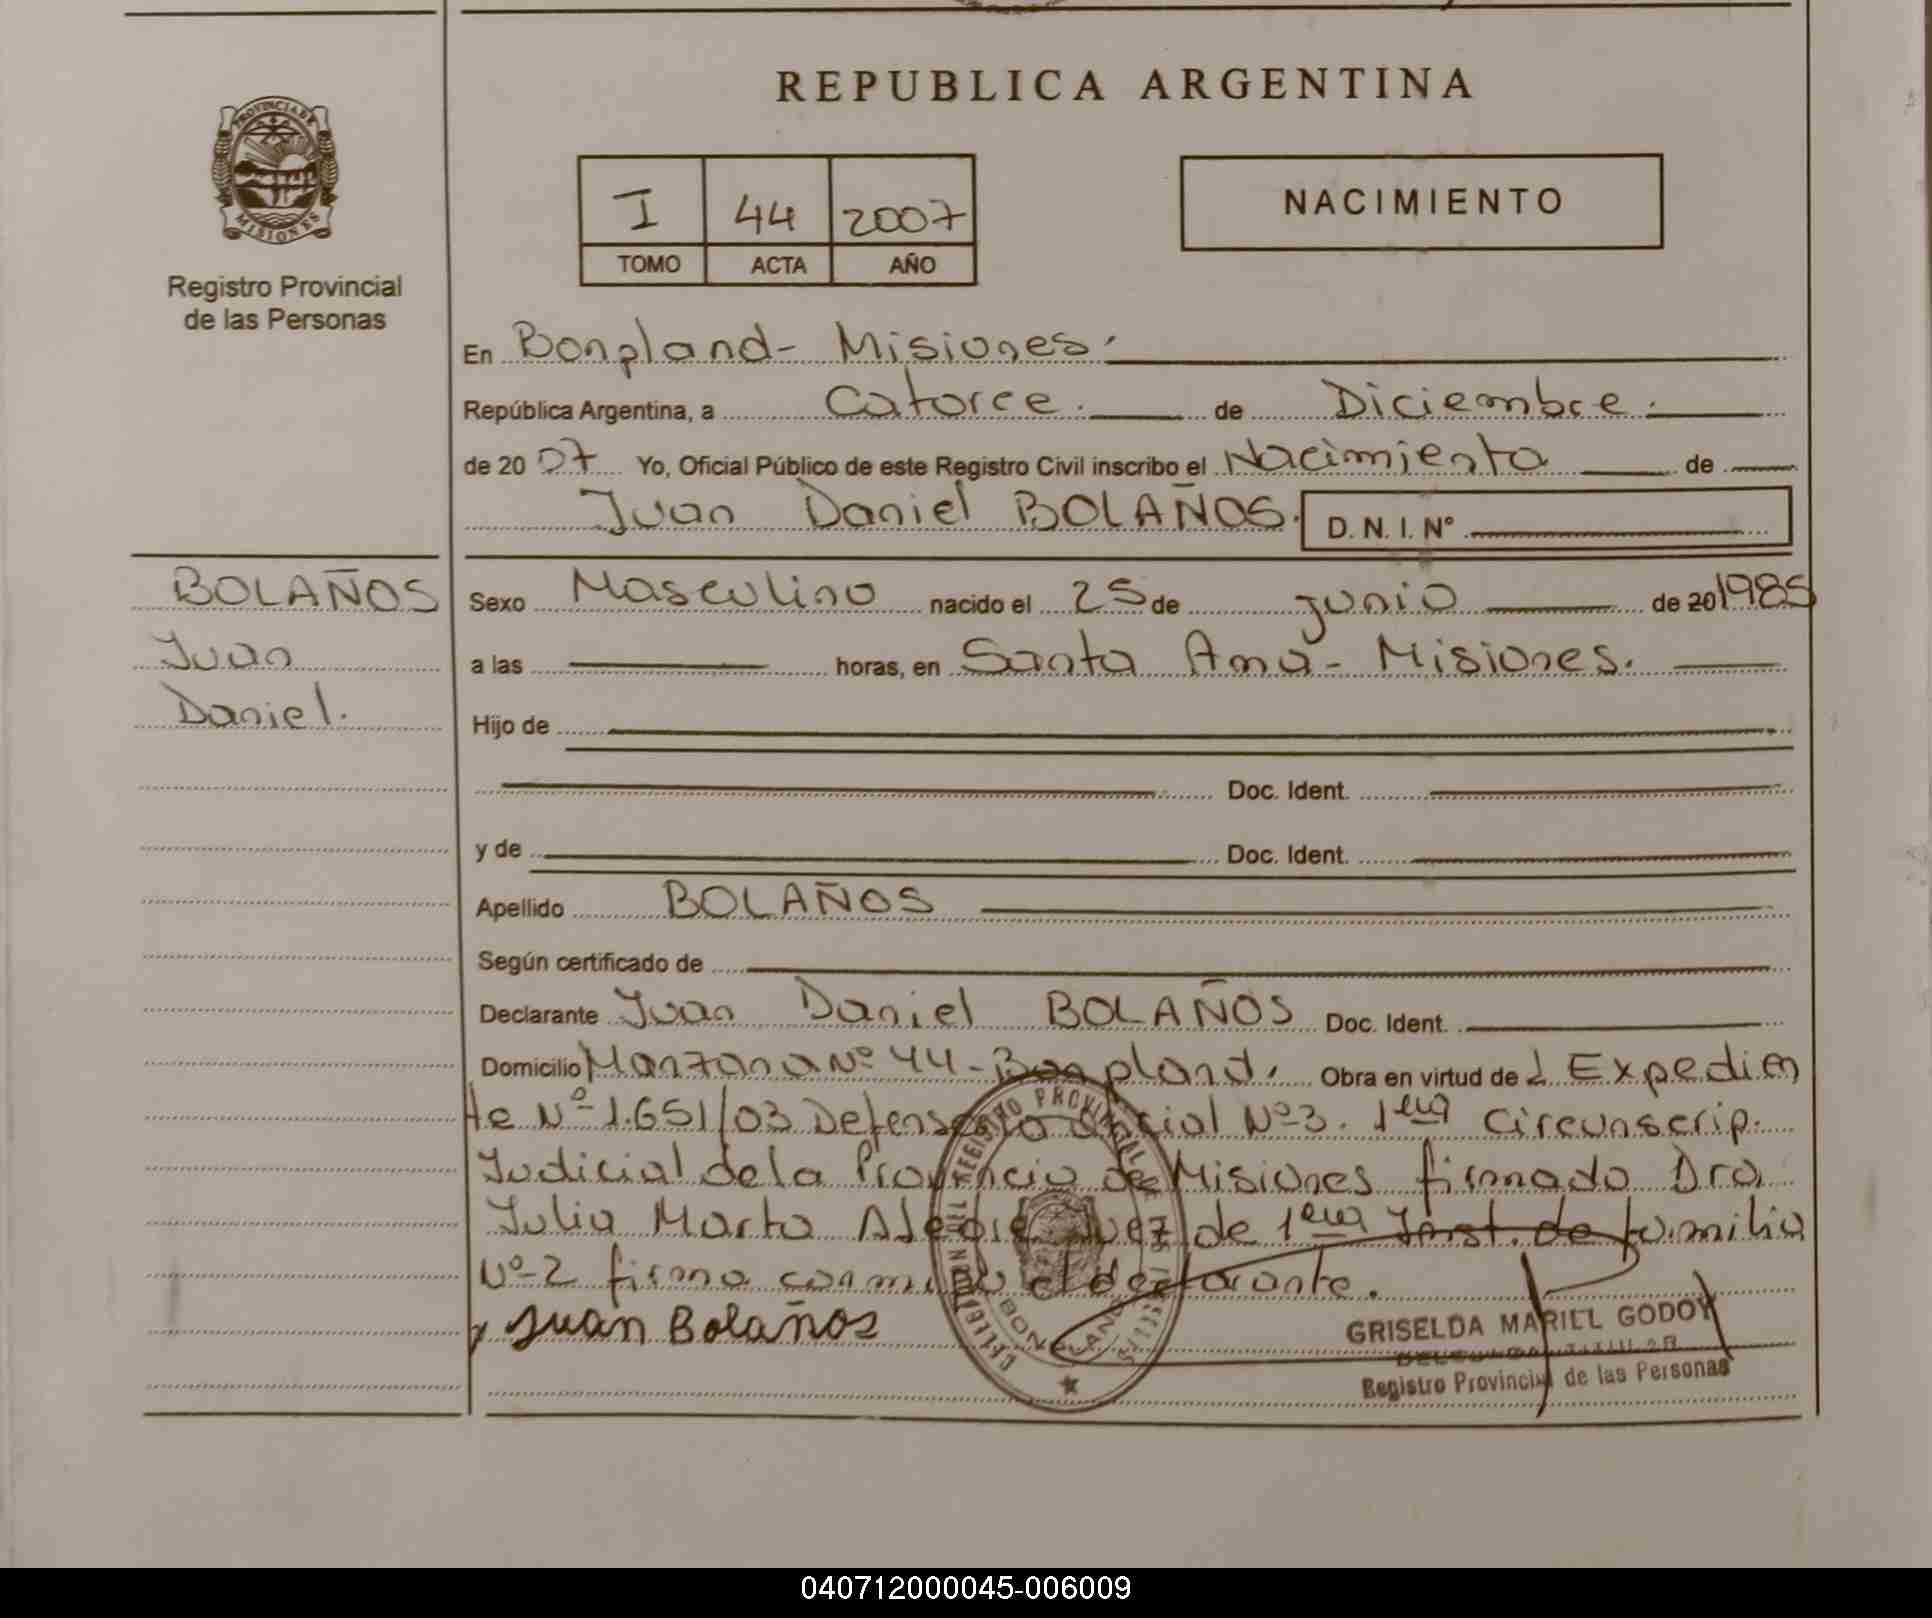 REPUBLICA ARGENTINA
PROVINCIA DE
MISIONES
Registro Provincial
de las Personas
I 44 2007
TOMO ACTA AÑO
NACIMIENTO
En Bonpland - Misiones.
República Argentina, a Catorce. de Diciembre.
de 20 07 Yo, Oficial Público de este Registro Civil inscribo el Nacimiento de
Juan Daniel BOLAÑOS. D. N. I. Nº
BOLAÑOS
Juan
Daniel.
Sexo Masculino nacido el 25 de junio de 20 1985
a las horas, en Santa Ana - Misiones.
Hijo de
Doc. Ident.
y de Doc. Ident.
Apellido BOLAÑOS
Según certificado de
Declarante Juan Daniel BOLAÑOS Doc. Ident.
Domicilio Manzana Nº 44 - Bonpland. Obra en virtud de l Expedien
te Nº 1.651/03 Defensoria Oficial Nº 3. 1era Circunscrip.
Judicial de la Provincia de Misiones firmado Dra
Julia Marta Alegre Juez de 1era Inst. de familia
Nº 2 firma conmigo el declarante.
Juan Bolaños
REGISTRO PROVINCIAL
BONPLAND
GRISELDA MARIEL GODOY
Registro Provincial de las Personas
040712000045-006009